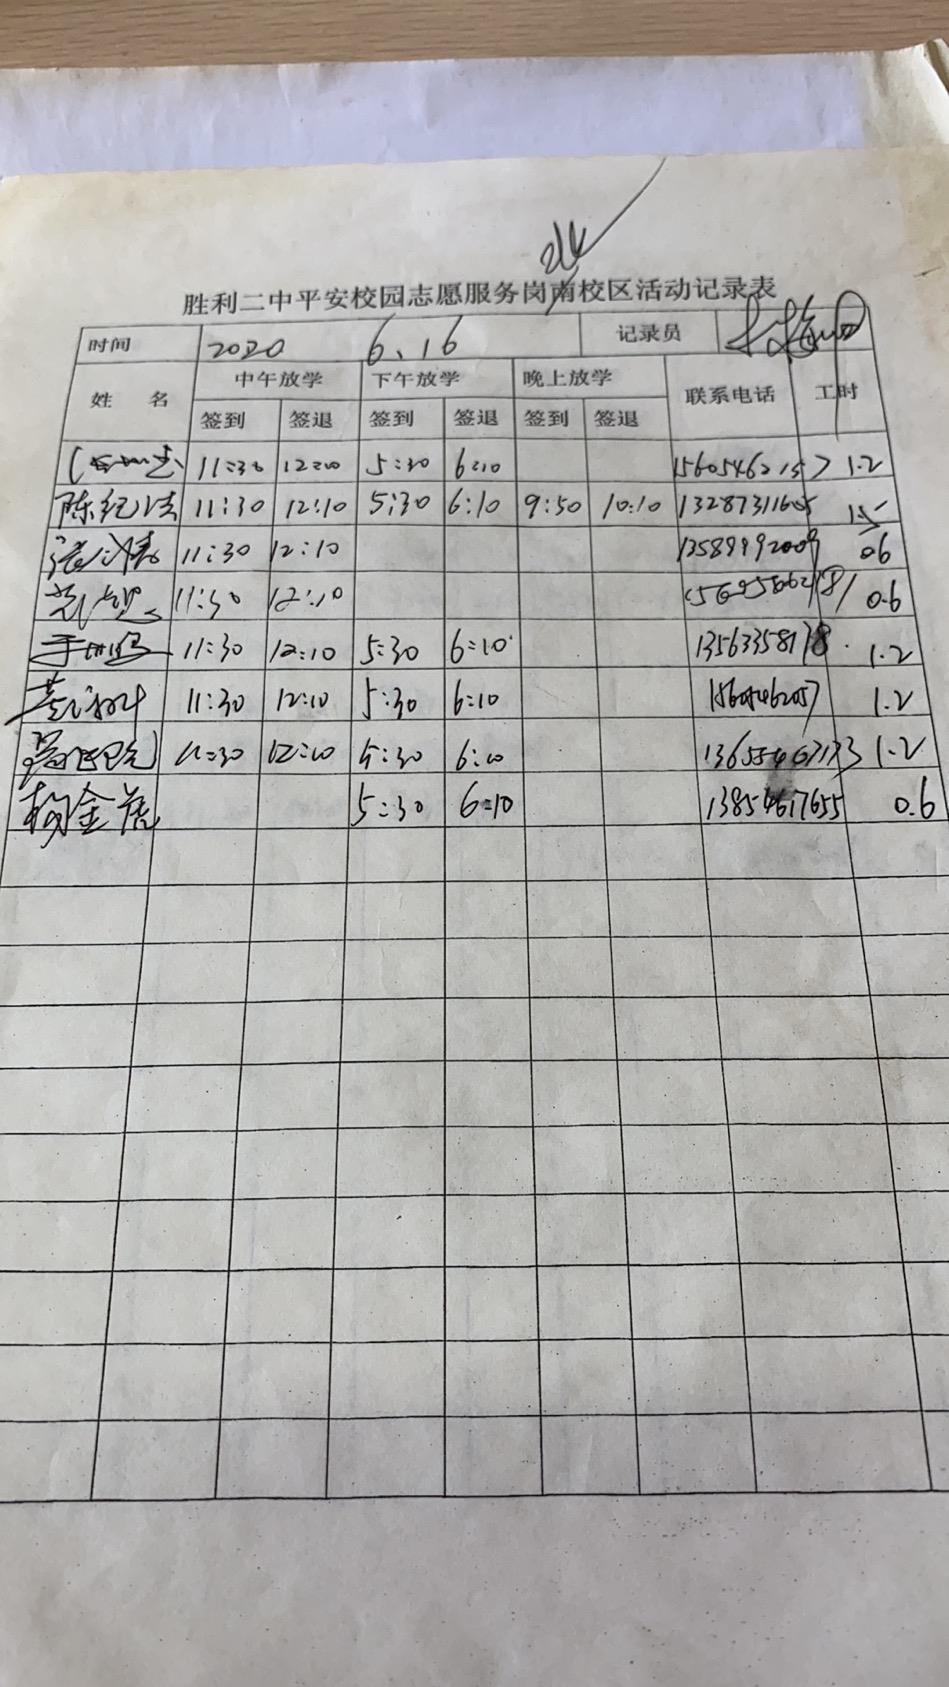 北
胜利二中平安校园志愿服务岗南校区活动记录表
时间 2020 6.16 记录员
姓 名 中午放学 下午放学 晚上放学 联系电话 工时
签到 签退 签到 签退 签到 签退
11:30 12:00 5:30 6:10 1.2
陈纪法 11:30 12:10 5:30 6:10 9:50 10:10 13287311605 1.5
11:30 12:10 13589992009 06
11:30 12:10 0.6
11:30 12:10 5:30 6:10 13563358178 1.2
11:30 12:10 5:30 6:10 15605462057 1.2
11:30 12:10 5:30 6:10 13655467173 1.2
杨金虎 5:30 6:10 13854617655 0.6